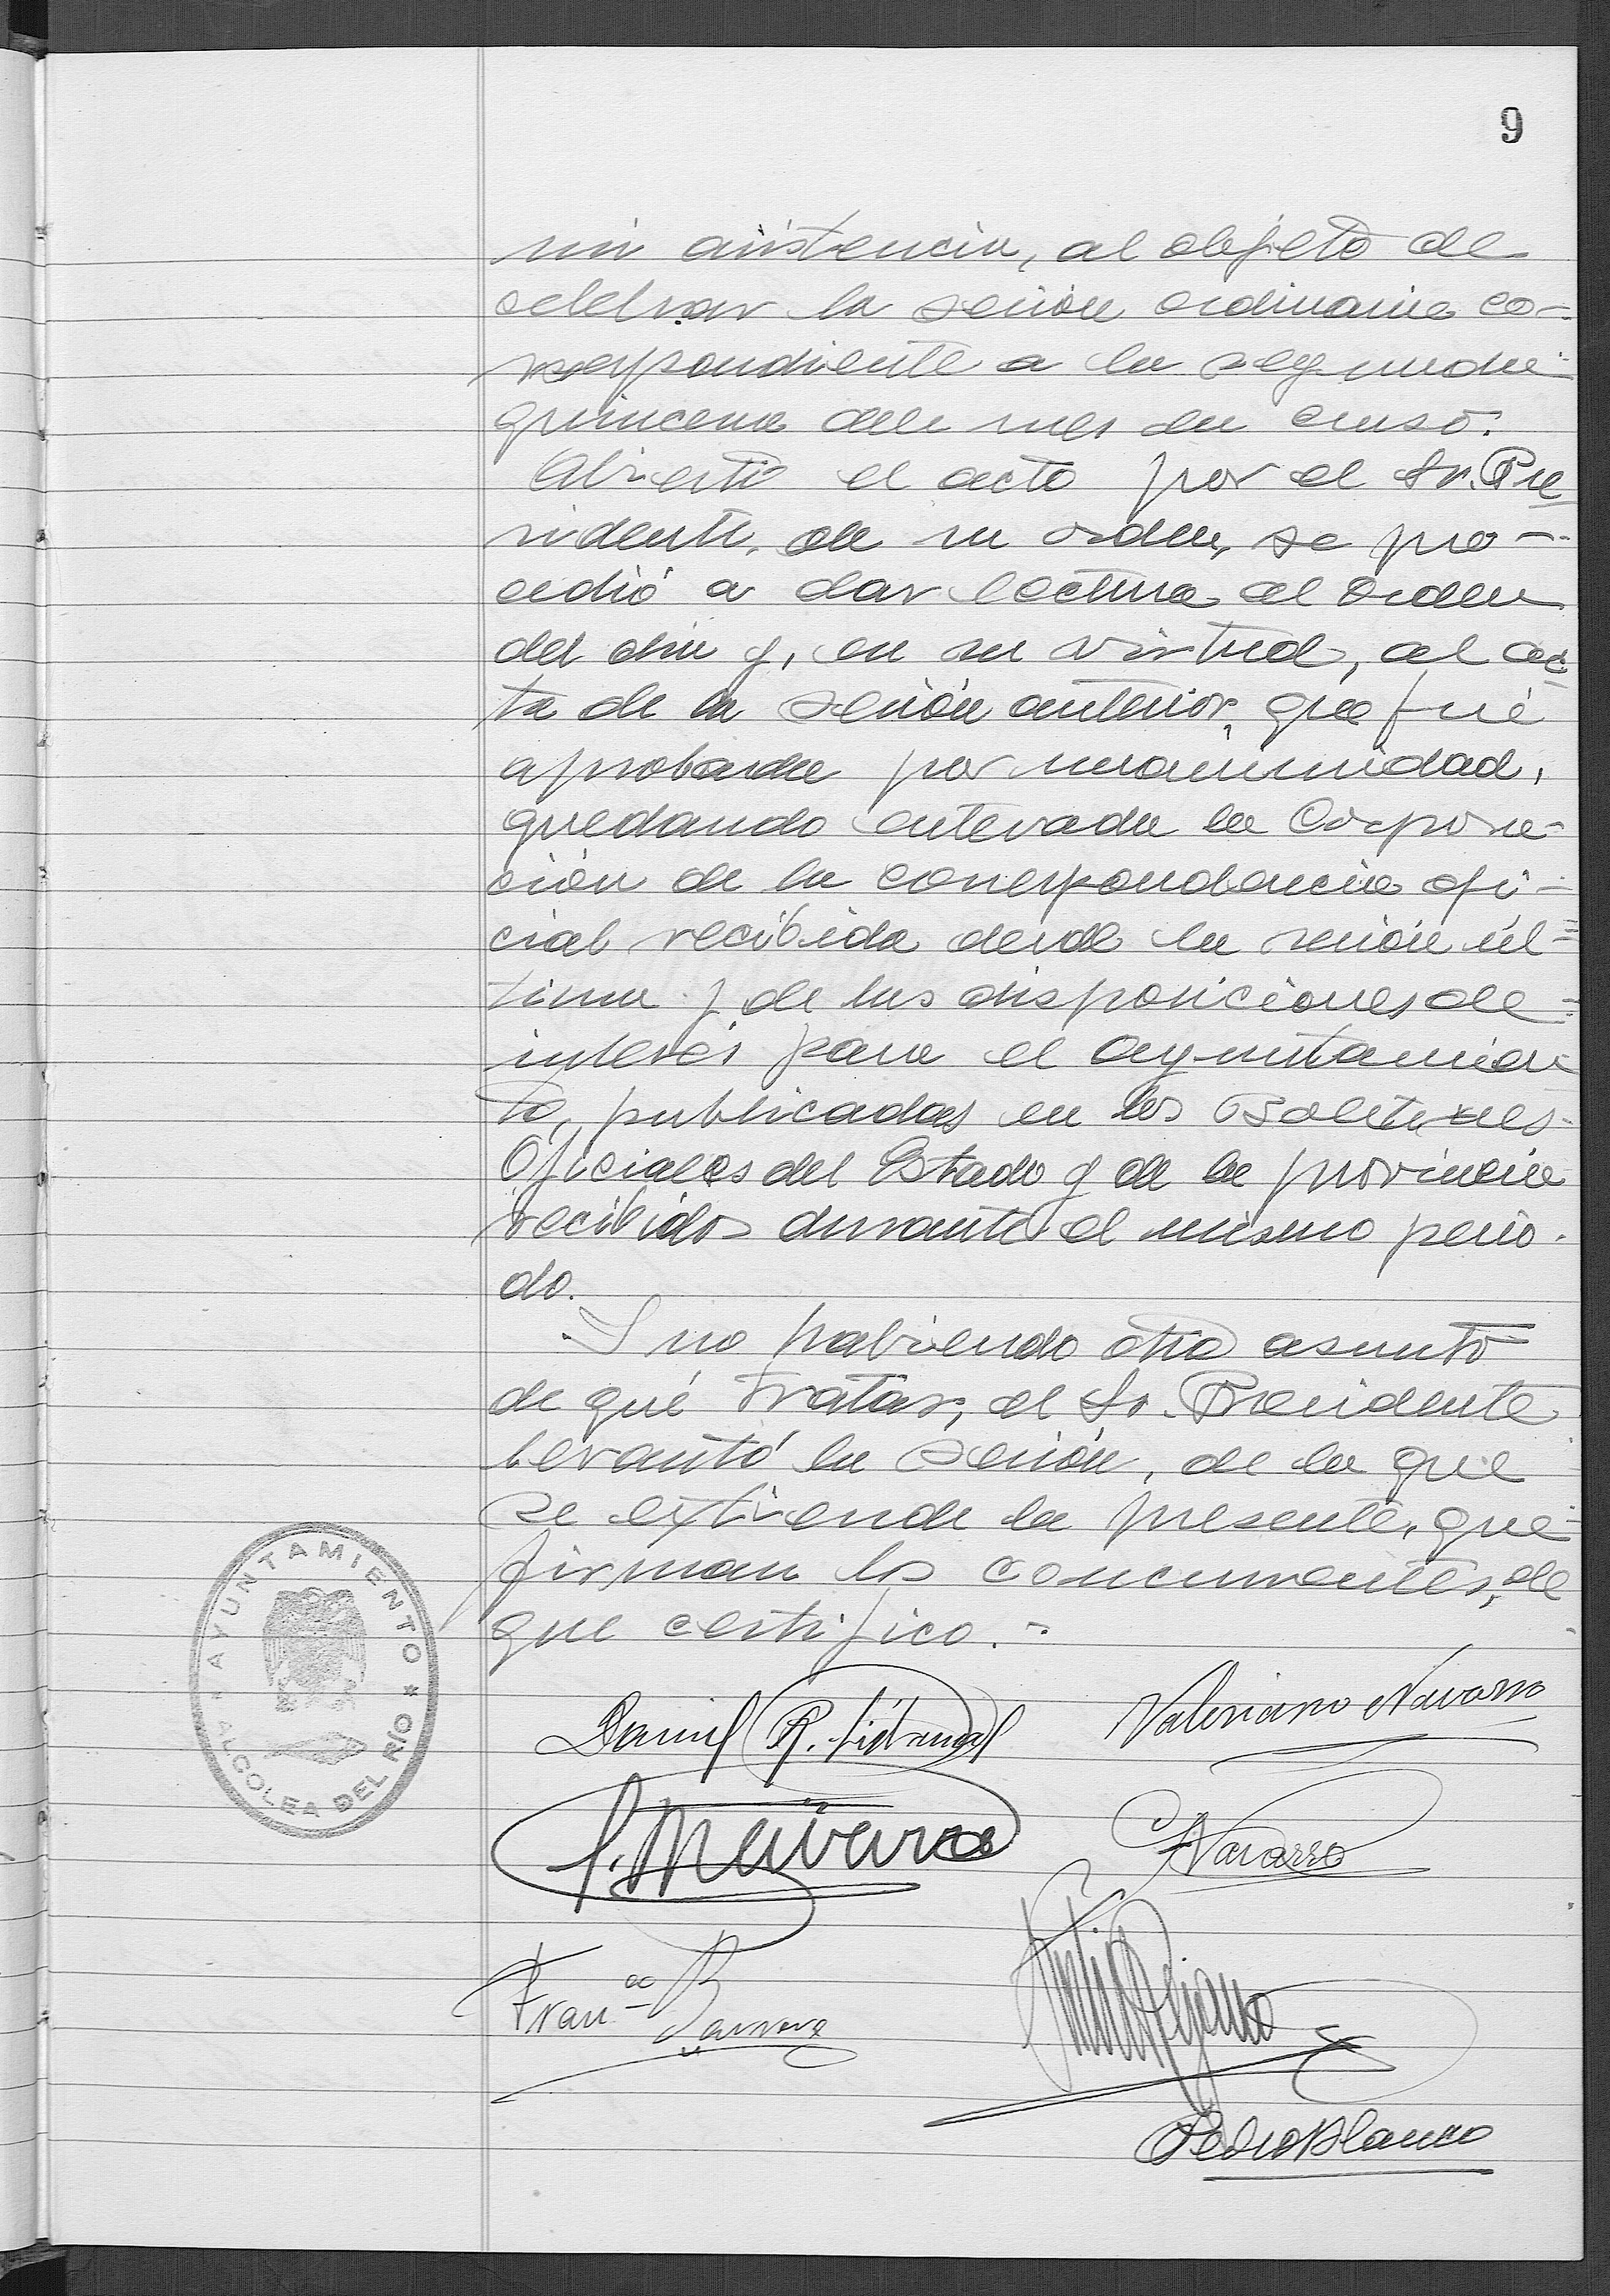 9
mi asistencia, al objeto de
celebrar la sesión ordinaria co-
rrespondiente a la segunda
quincena del mes en curso.
Abierto el acto por el Sr. Pre
sidente, de su orden, se pro-
cedió a dar lectura al Orden
del día y, en su virtud, al ac
ta de la sesión anterior, que fué
aprobada por unanimidad,
quedando enterada la Corpora-
ción de la correspondencia ofi-
cial recibida desde la sesión úl-
tima y de las disposiciones de
interés para el ayuntamien
to, publicadas en los Boletines
Oficiales del Estado y de la provincia
recibidos durante el mismo perio-
do.
Y no habiendo otro asunto
de qué tratar, el Sr. Presidente
levantó la sesión, de la que
se extiende la presente, que
firman los concurrentes, de
que certifico.-
AYUNTAMIENTO
* ALCOLEA DEL RÍO *
Daniel R.
Valeriano Navarro
Navarro
Franco Barrera
Pedro Blanco